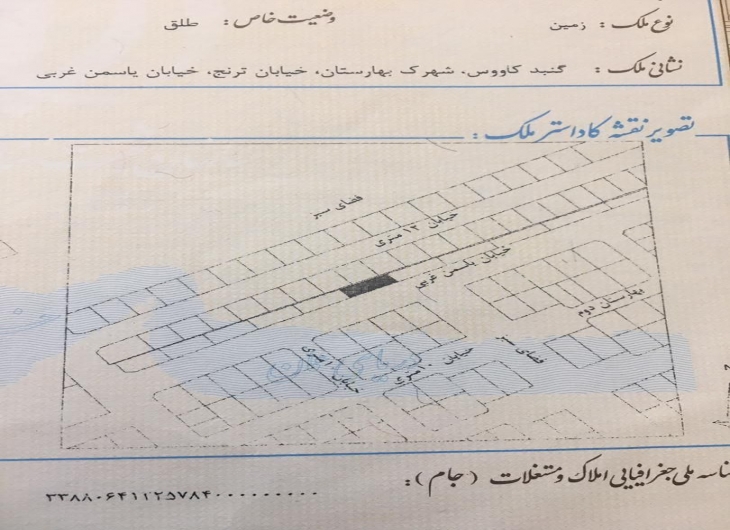 نوع ملک : زمین وضعیت خاص : طلق
نشانی ملک : گنبد کاووس، شهرک بهارستان، خیابان ترنج، خیابان یاسمن غربی
تصویر نقشه کاداستر ملک :
فضای سبز
خیابان ۱۲ متری
خیابان یاسمن غربی
بهارستان دوم
فضای سبز
خیابان ۱۰ متری
ناسه ملی جغرافیایی املاک و مستغلات (جام) :
۳۳۸۸۰۶۴۱۱۲۵۷۸۴۰۰۰۰۰۰۰۰۰۰